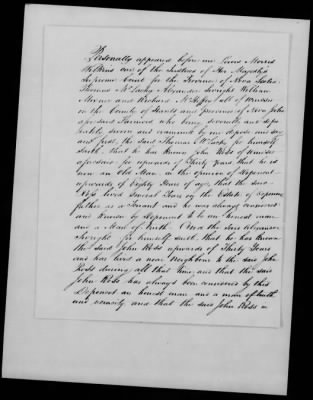 Personally appeared before me Lewis Morris
Wilkins one of the Justices of Her Majesty's
Supreme Court for the Province of Nova Scotia
Thomas McLachy Alexander Dwight William
Alvone and Richard McHeffey all of Windsor
in the County of Hants and Province of Nova Scotia
aforesaid Farmers who being severally and sepa
rately sworn and examined by me depose and say
and first, the said Thomas McLachy for himself
saith, that he has known John Ross of Windsor
aforesaid for upwards of Thirty Years that he is
now an Old Man in the opinion of Deponent
upwards of Eighty Years of age, that the said
Ross lived several Years on the Estate of deponents
father as a Tenant and he was always conceived
and known by Deponent to be an honest man
and a Man of truth. And the said Alexander
Dwight for himself saith that he has known
the said John Ross upwards of Thirty Years
and has lived a near Neighbour to the said John
Ross during all that time and that the said
John Ross has always been conceived by this
Deponent an honest man and a man of truth
and veracity and that the said John Ross is